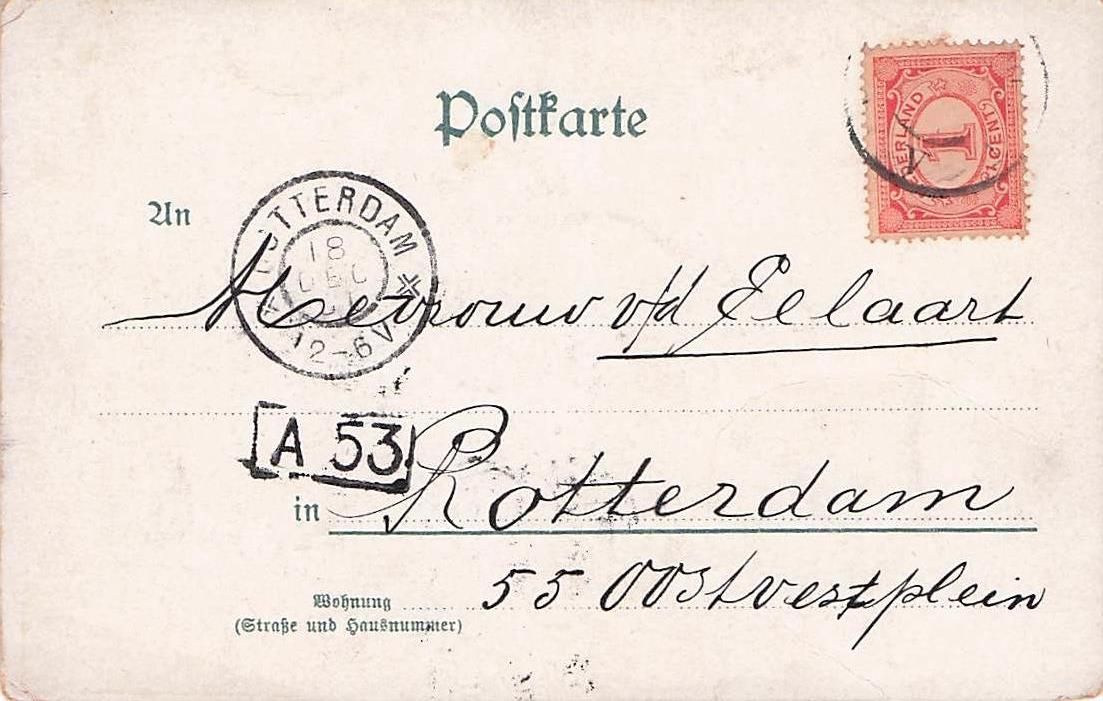 Postkarte
NEDERLAND 1 CENT
An
ROTTERDAM
18
DEC
12-6V
Mevrouw v/d Eelaart
A 53
in Rotterdam
55 Oostvestplein
Wohnung
(Straße und Hausnummer)